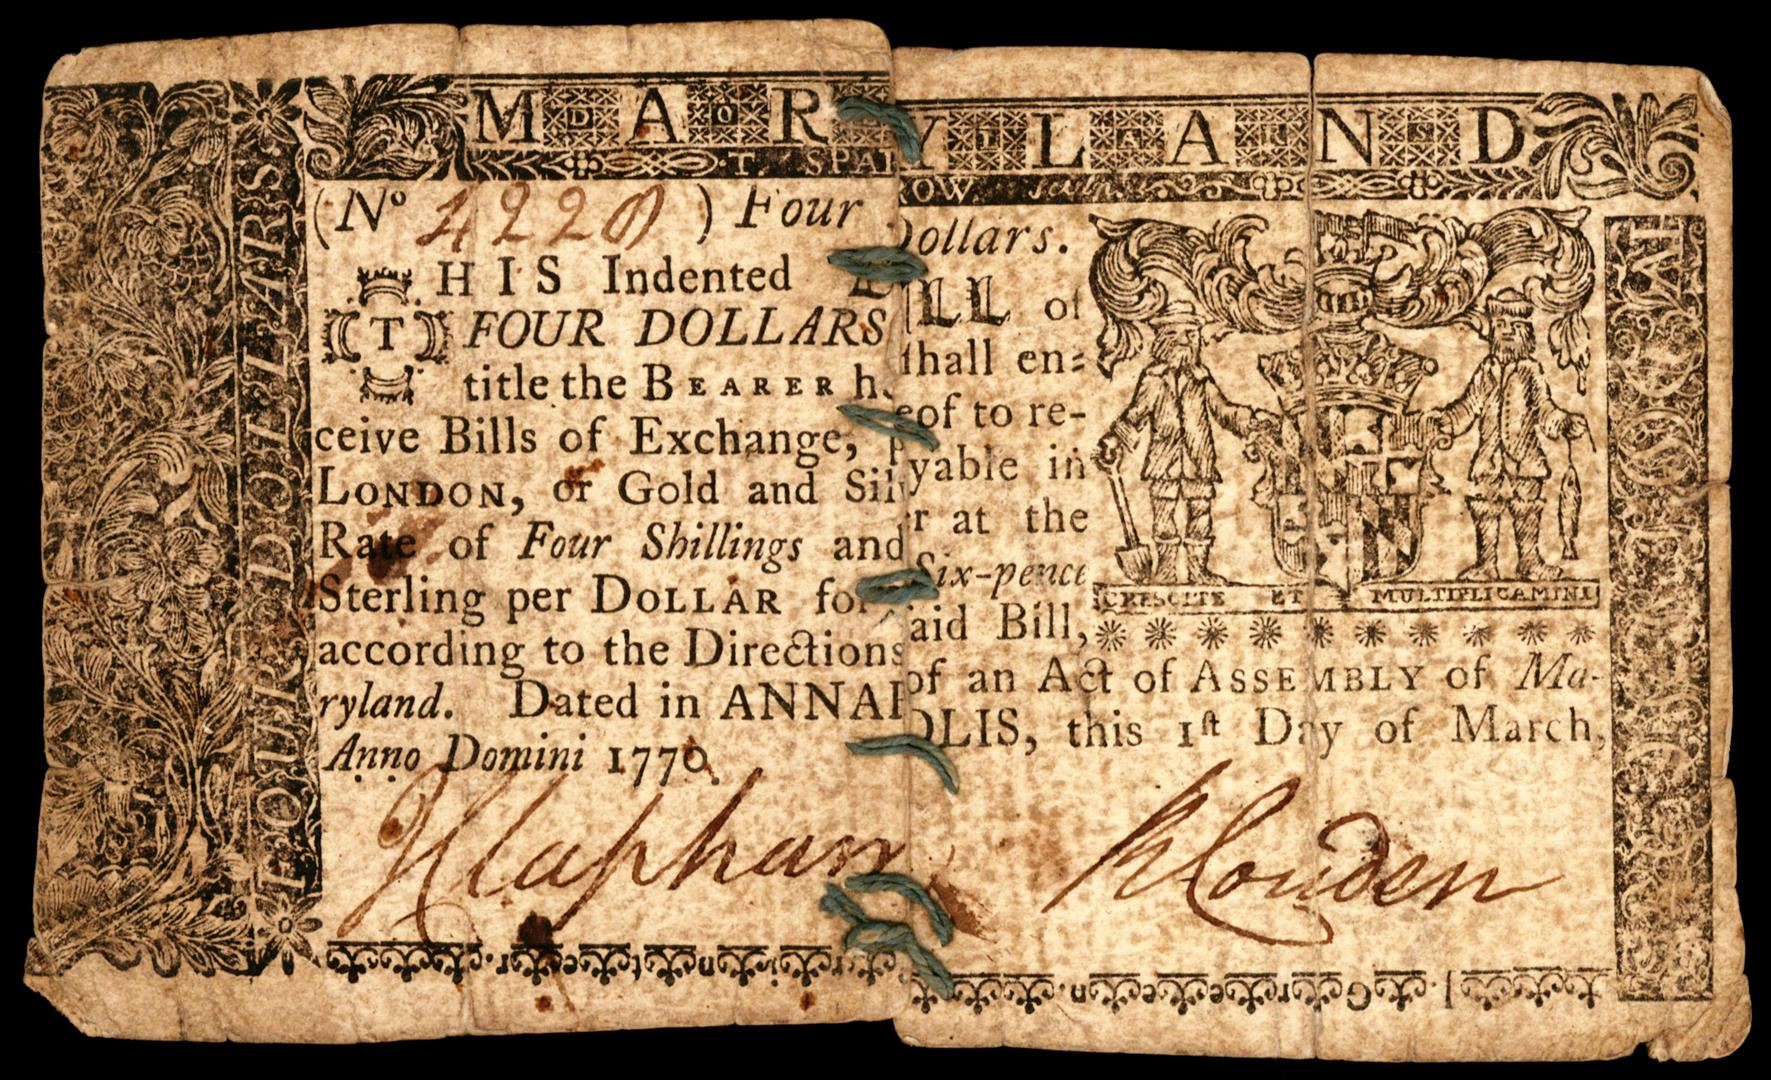 MARYLAND
T. SPARROW.
(No 4220) Four Dollars.
THIS Indented BILL of
FOUR DOLLARS shall en-
title the BEARER hereof to re-
ceive Bills of Exchange, payable in
LONDON, or Gold and Silver at the
Rate of Four Shillings and Six-pence
Sterling per DOLLAR for said Bill,
according to the Directions of an Act of ASSEMBLY of Ma-
ryland. Dated in ANNAPOLIS, this 1st Day of March,
Anno Domini 1770.
J Clapham
R Couden
FOUR DOLLARS.
CRESCITE ET MULTIPLICAMINI